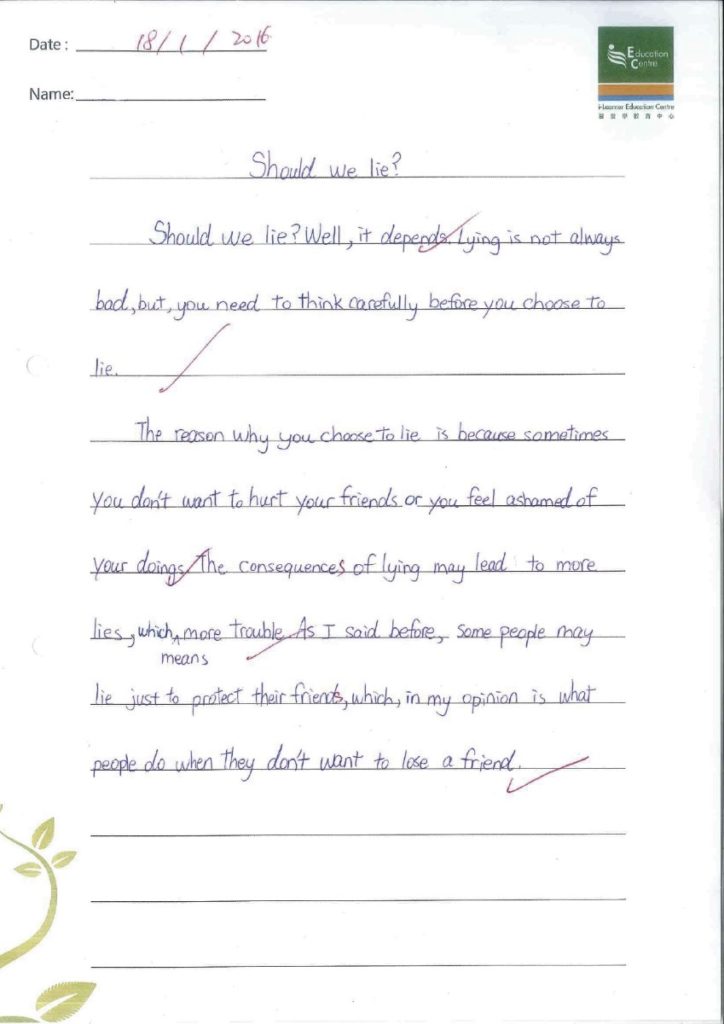 Date : 18/1/2016
Education
Centre
Name:
i-Learner Education Centre
Should we lie?
Should we lie? Well, it depends. Lying is not always
bad, but, you need to think carefully before you choose to
lie.
The reason why you choose to lie is because sometimes
you don't want to hurt your friends or you feel ashamed of
your doings. The consequences of lying may lead to more
lies, which means more trouble. As I said before, some people may
lie just to protect their friends, which, in my opinion is what
people do when they don't want to lose a friend.